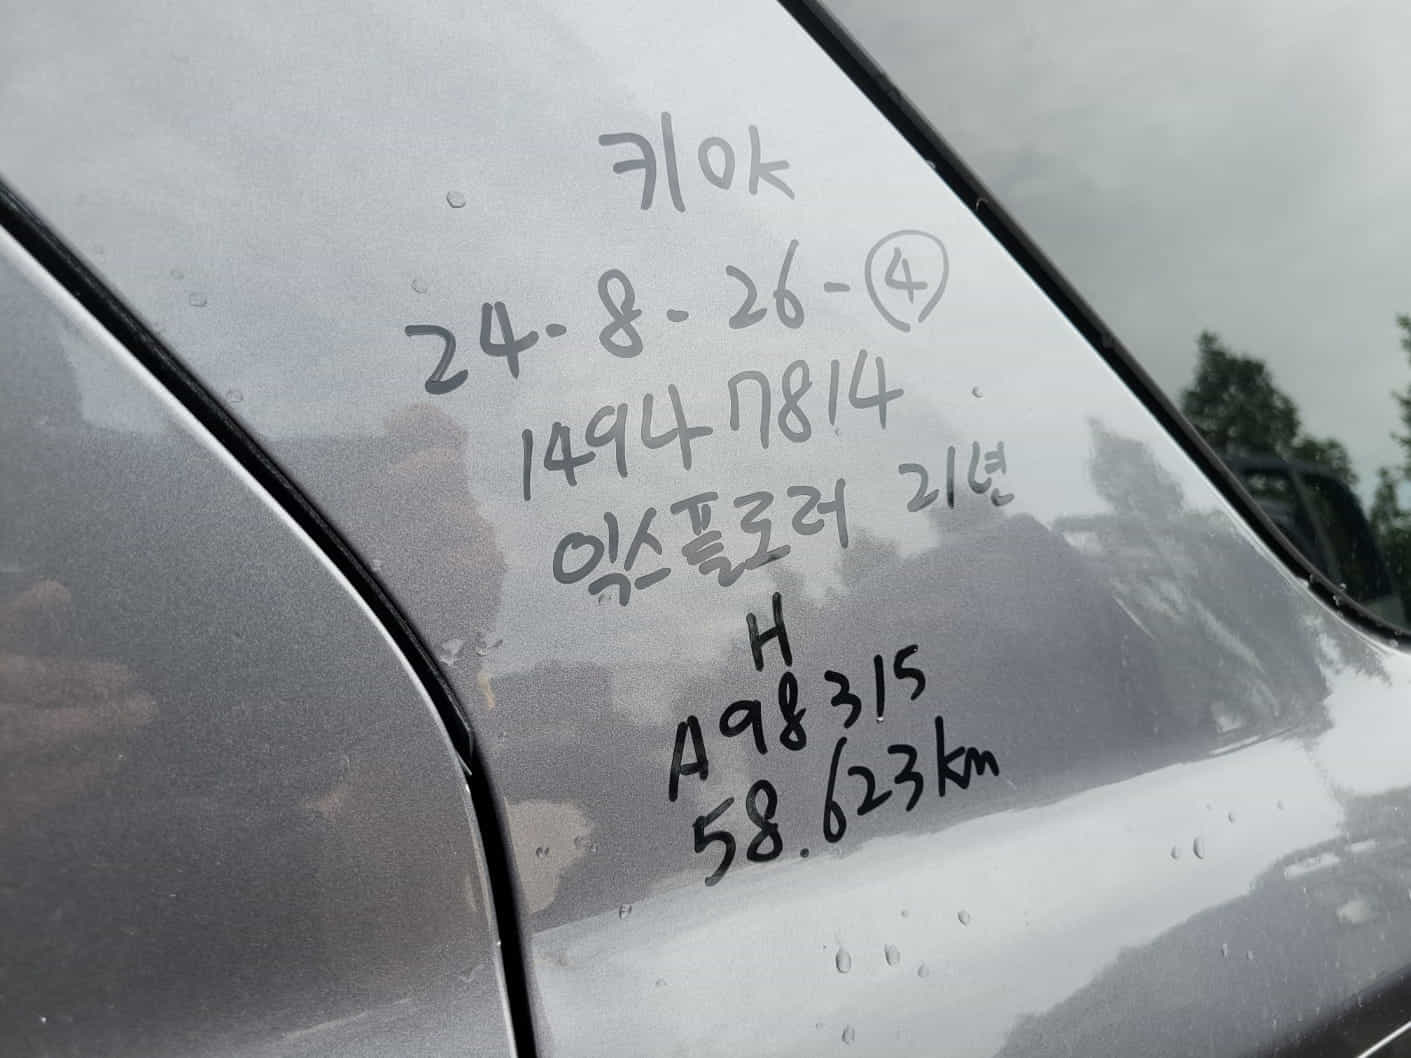 키 OK
24-8-26-④
14947814
익스플로러 21년
H
A98315
58.623km